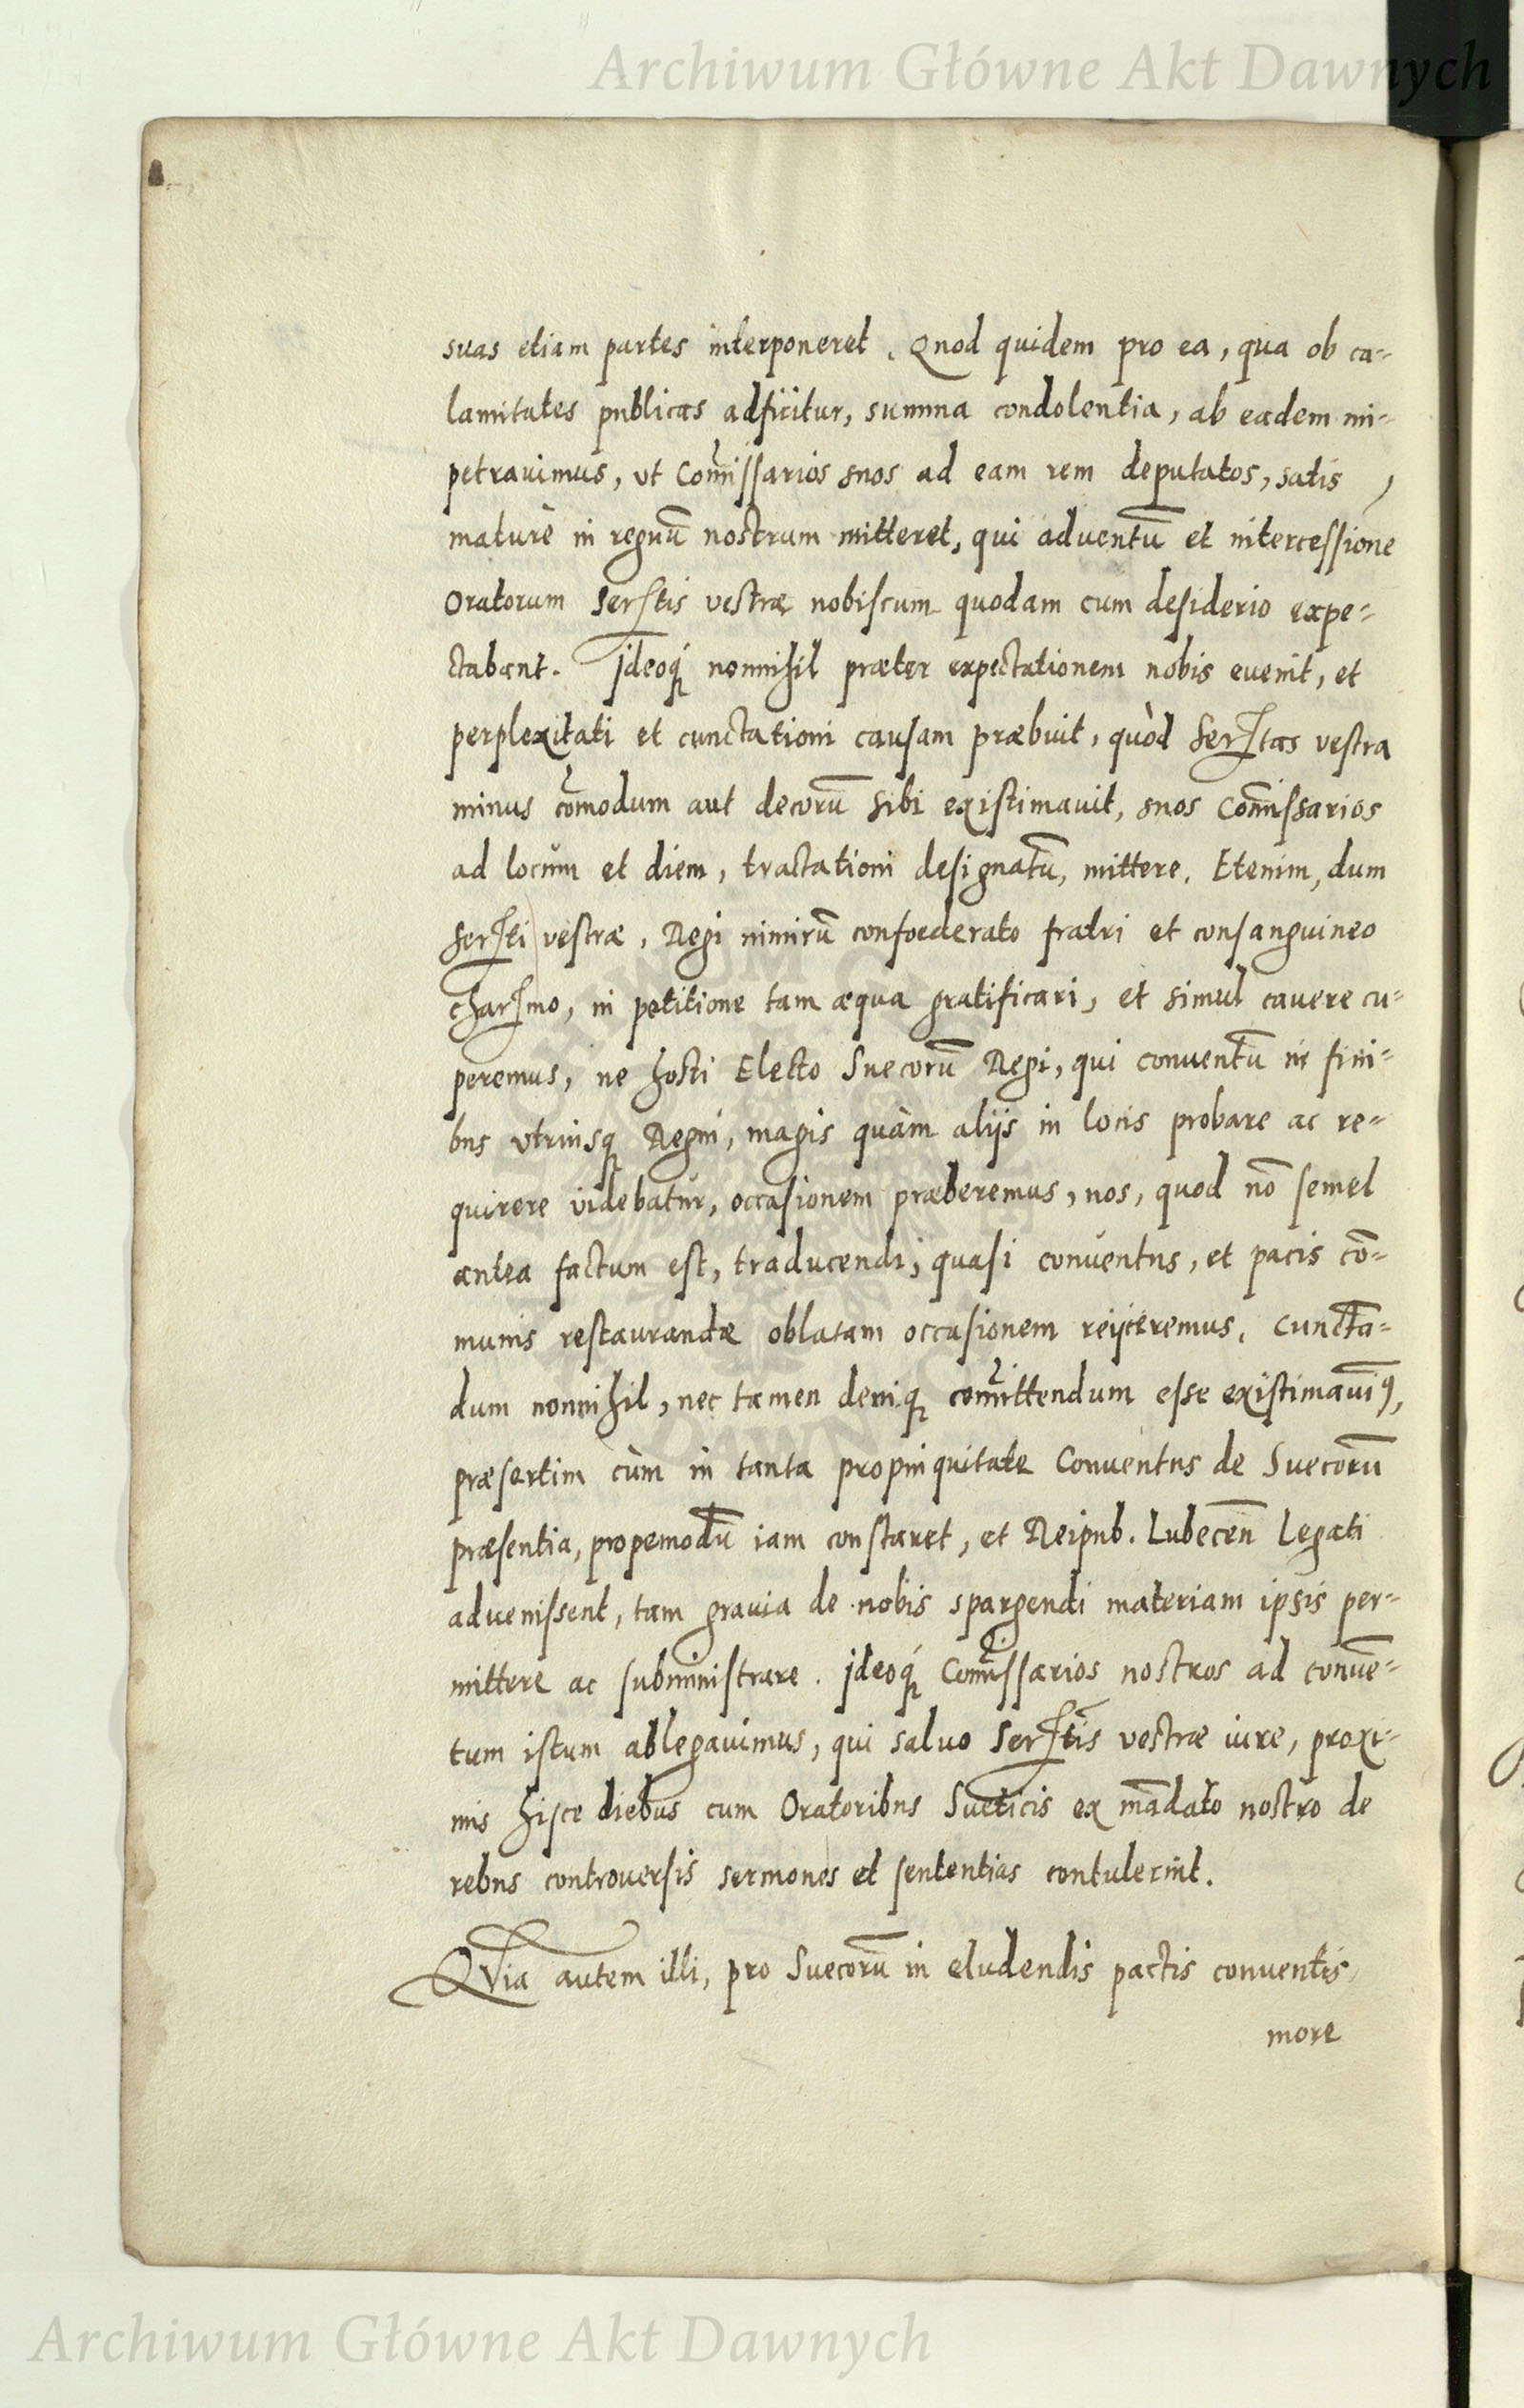 Archiwum Główne Akt Dawnych
suas etiam partes interponeret. Quod quidem pro ea, qua ob ca-
lamitates publicas adficitur, summa condolentia, ab eadem im-
petravimus, vt Com̃issarios suos ad eam rem deputatos, satis
maturè in regnū nostrum mitteret, qui adventū et intercessionē
Oratorum Serstis vestræ nobiscum quodam cum desiderio expe-
ctabant. Jdeoq́ nonnihil præter expectationem nobis euenit, et
perplexitati et cunctationi causam præbuit, quòd Serstas vestra
minus com̃odum aut decorū sibi existimauit, suos Com̃issarios
ad locum et diem, tractationi designatū, mittere. Etenim, dum
Sersti vestræ, Regi nimirū confoederato fratri et consanguineo
charsmo, in petitione tam æqua gratificari, et simul cauere cu-
peremus, ne hosti Electo Suecorū Regi, qui conventū in fini-
bus vtriusq Regni, magis quàm alijs in locis probare ac re-
quirere videbatur, occasionem præberemus, nos, quod nō semel
antea factum est, traducendi, quasi conventus, et pacis cō-
munis restaurandæ oblatam occasionem reijceremus, cunctā-
dum nonnihil, nec tamen deniq com̃ittendum esse existimauiꝰ,
præsertim cùm in tanta propinquitate Conuentus de Suecorū
præsentia, propemodū iam constaret, et Reipub. Lubecen̄ Legati
advenissent, tam gravia de nobis spargendi materiam ipsis per-
mittere ac subministrare. Jdeoq́ Com̃issarios nostros ad convē-
tum istum ablegauimus, qui salvo Serstis vestræ iure, proxi-
mis hisce diebus cum Oratoribus Sueticis ex mādato nostro de
rebus controuersis sermones et sententias contulerint.
QVia autem illi, pro Suecorū in eludendis pactis conventis
more
Archiwum Główne Akt Dawnych